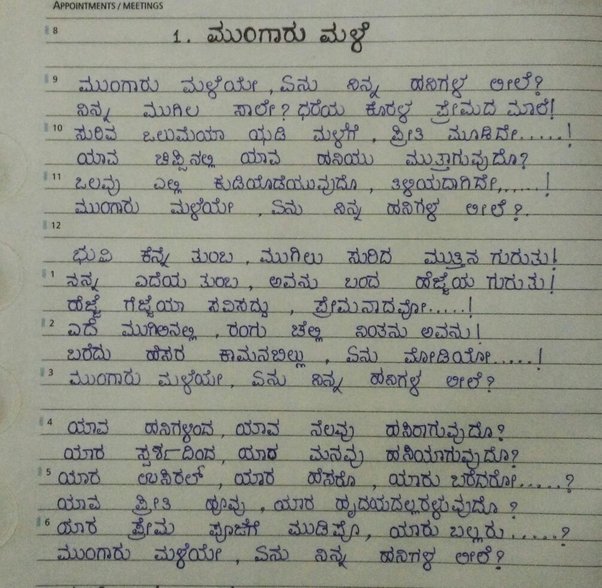 APPOINTMENTS / MEETINGS
8
1. ಮುಂಗಾರು ಮಳೆ
9 ಮುಂಗಾರು ಮಳೆಯೇ, ಏನು ನಿನ್ನ ಹನಿಗಳ ಲೀಲೆ?
ನಿನ್ನ ಮುಗಿಲ ಸಾಲೇ? ಧರೆಯ ಕೊರಳ ಪ್ರೇಮದ ಮಾಲೆ!
10 ಸುರಿವ ಒಲುಮೆಯಾ ಝಡಿ ಮಳೆಗೆ, ಪ್ರೀತಿ ಮೂಡಿದೇ.....!
ಯಾವ ಚಿಪ್ಪಿನಲ್ಲಿ ಯಾವ ಹನಿಯು ಮುತ್ತಾಗುವುದೊ?
11 ಒಲವು ಎಲ್ಲಿ ಕುಡಿಯೊಡೆಯುವುದೊ, ತಿಳಿಯದಾಗಿದೇ......!
ಮುಂಗಾರು ಮಳೆಯೇ, ಏನು ನಿನ್ನ ಹನಿಗಳ ಲೀಲೆ?
12
ಭುವಿ ಕೆನ್ನೆ ತುಂಬ, ಮುಗಿಲು ಸುರಿದ ಮುತ್ತಿನ ಗುರುತು!
1 ನನ್ನ ಎದೆಯ ತುಂಬ, ಅವನು ಬಂದ ಹೆಜ್ಜೆಯ ಗುರುತು!
ಹೆಜ್ಜೆ ಗೆಜ್ಜೆಯಾ ಸವಿಸದ್ದು, ಪ್ರೇಮನಾದವೋ.....!
2 ಎದೆ ಮುಗಿಲಿನಲ್ಲಿ, ರಂಗು ಚೆಲ್ಲಿ ನಿಂತನು ಅವನು!
ಬರೆದು ಹೆಸರ ಕಾಮನಬಿಲ್ಲು, ಏನು ಮೋಡಿಯೋ.....!
3 ಮುಂಗಾರು ಮಳೆಯೇ, ಏನು ನಿನ್ನ ಹನಿಗಳ ಲೀಲೆ?
4 ಯಾವ ಹನಿಗಳಿಂದ, ಯಾವ ನೆಲವು ಹಸಿರಾಗುವುದೊ?
ಯಾರ ಸ್ಪರ್ಶದಿಂದ, ಯಾರ ಮನವು ಹಸಿಯಾಗುವುದೊ?
5 ಯಾರ ಉಸಿರಲ್, ಯಾರ ಹೆಸರೊ, ಯಾರು ಬರೆದರೋ.....?
ಯಾವ ಪ್ರೀತಿ ಹೂವು, ಯಾರ ಹೃದಯದಲ್ಲರಳುವುದೊ?
6 ಯಾರ ಪ್ರೇಮ ಪೂಜೆಗೆ ಮುಡಿಪೊ, ಯಾರು ಬಲ್ಲರು.....?
ಮುಂಗಾರು ಮಳೆಯೇ, ಏನು ನಿನ್ನ ಹನಿಗಳ ಲೀಲೆ?